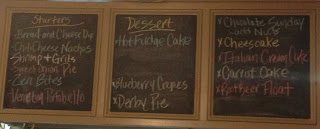 Starters
-Bread and Cheese Dip
-Chili Cheese Nachos
Shrimp & Grits
Sweet Onion Pie
-Corn Bites
Venetian Portobello
Dessert
*Hot Fudge Cake
*Blueberry Crepes
*Derby Pie
*Chocolate Sunday
-add Nuts
*Cheesecake
*Italian Cream Cake
*Carrot Cake
*Rootbeer Float